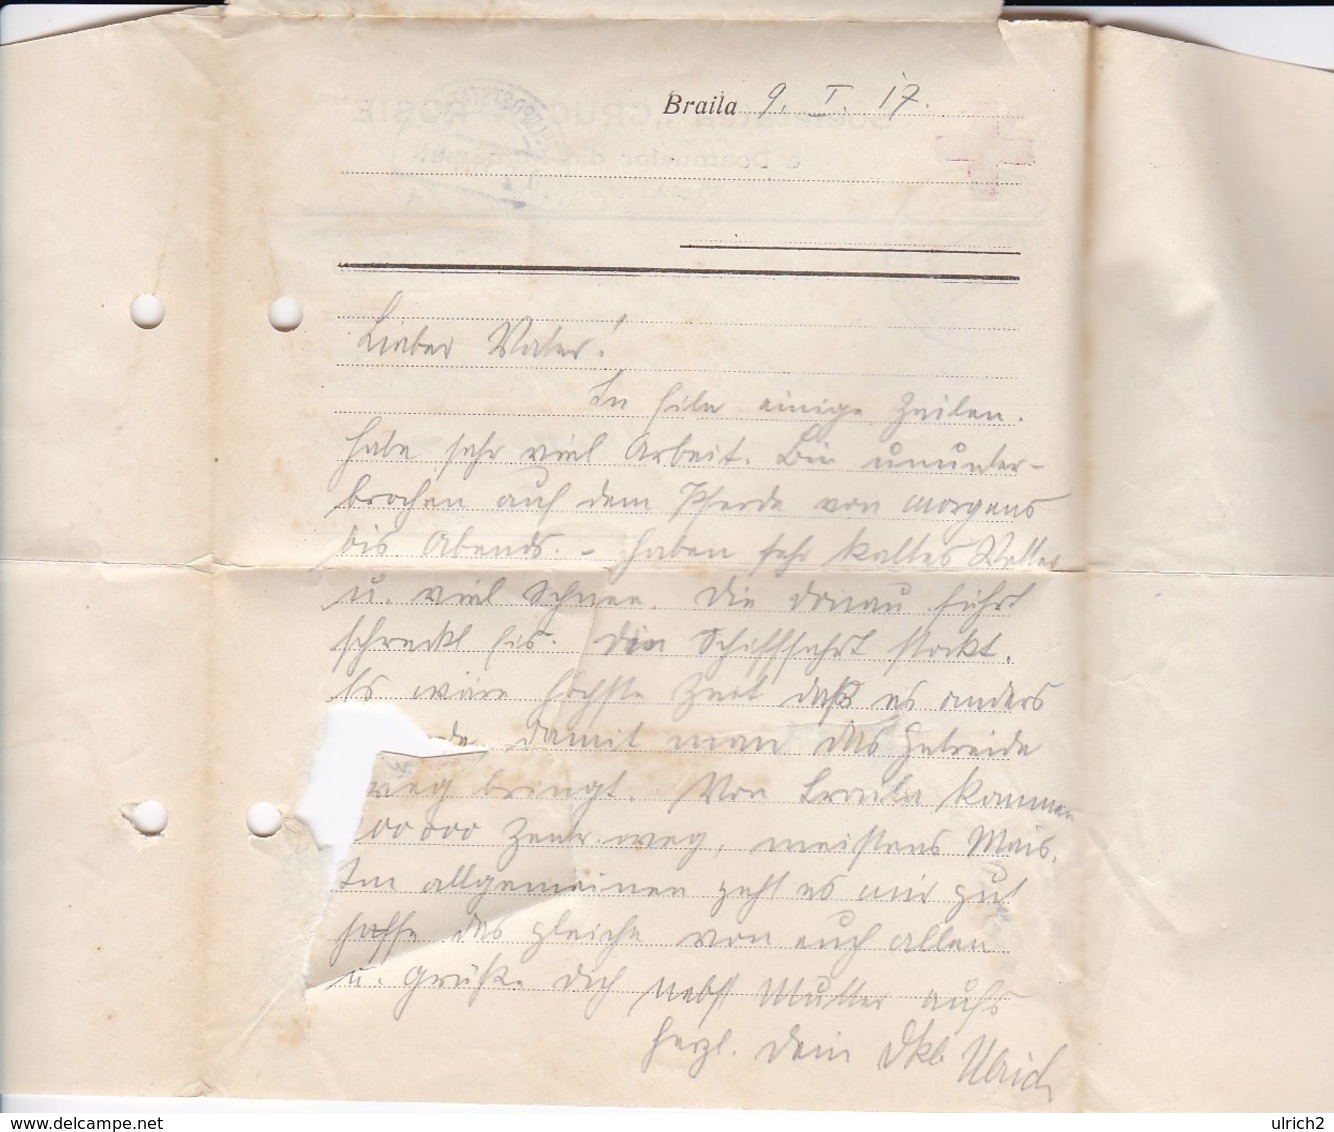 Braila 9. I. 17.
Lieber Vater!
In Eile einige Zeilen.
Habe sehr viel Arbeit. Bin ununter-
brochen auf dem Pferde von morgens
bis Abends. – Haben sehr kaltes Wetter
u. viel Schnee. Die Donau führt
schreckl Eis. Die Schifffahrt stockt.
Es wäre höchste Zeit daß es anders
damit man das Getreide
weg bringt. Von Braila kommen
00 000 Zentr. weg, meistens Mais.
Im allgemeinen geht es mir gut
hoffe das gleiche von euch allen
u. grüße Dich nebst Mutter aufs
herzl. Dein Dkb Ulrich
ulrich2